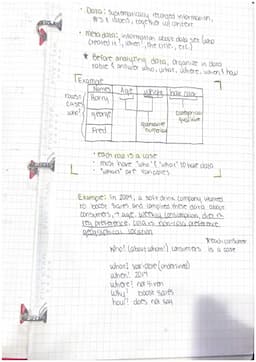 • Data: systematically recorded information,
#'s & labels, together w/ context
• Metadata: information about data set (who
created it, when, the time, etc.)
* Before analyzing data, organize in data
table & answer who, what, where, when & how
Example
Names Age weight hair color
rows:
cases
who!
Harry
george
Fred
quantitative
numerical
categorical
qualitative
• Each row is a case
- must have "who" & "what" to have data
- "what" are variables
Example: In 2009, a soft drink company wanted
to boost sales and compiled these data about
consumers: age, weekly consumption, diet or
reg preference, cola vs non-cola preference,
geographical location
Who: (about whom?) consumers
* each consumer
is a case
what: variable (underlined)
when: 2009
where: not given
why: boost sales
how: does not say